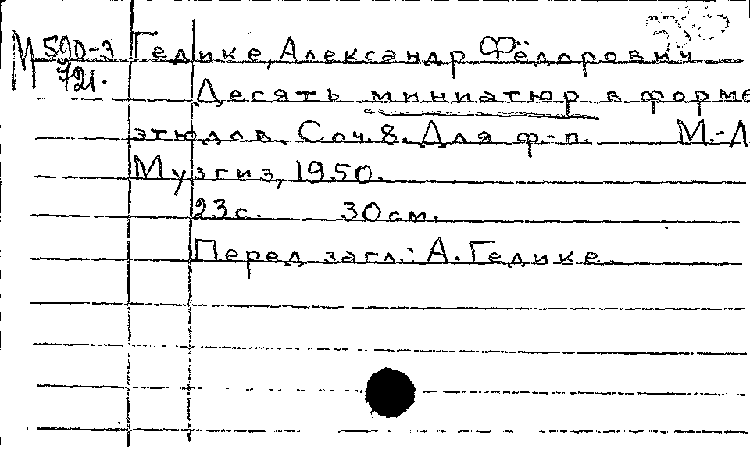 М 590-3 Гедике, Александр Фёдорович
721.
Десять миниатюр в форме
этюдов. Соч. 8. Для ф-п. М.-Л
Музгиз, 1950.
23с. 30см.
Перед загл.: А. Гедике.